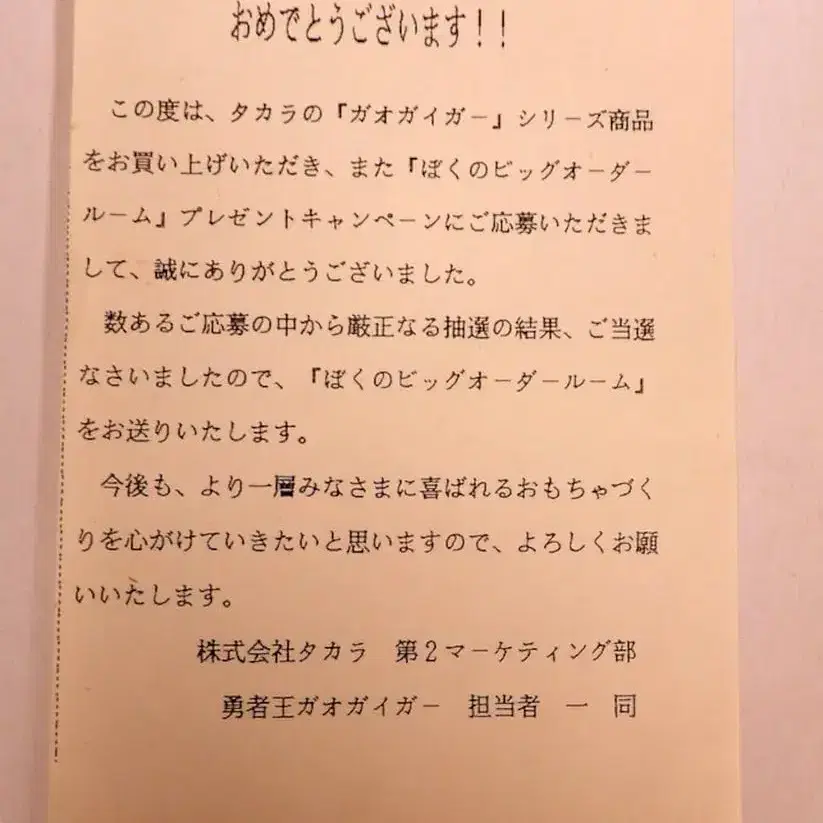 おめでとうございます！！
この度は、タカラの『ガオガイガー』シリーズ商品
をお買い上げいただき、また『ぼくのビッグオーダー
ルーム』プレゼントキャンペーンにご応募いただきま
して、誠にありがとうございました。
数あるご応募の中から厳正なる抽選の結果、ご当選
なさいましたので、『ぼくのビッグオーダールーム』
をお送りいたします。
今後も、より一層みなさまに喜ばれるおもちゃづく
りを心がけていきたいと思いますので、よろしくお願
いいたします。
株式会社タカラ　第２マーケティング部
勇者王ガオガイガー　担当者　一　同